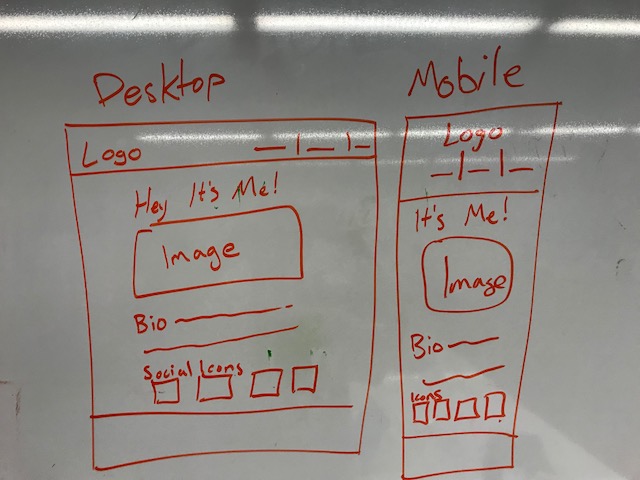 Desktop
Logo
Hey It's Me!
Image
Bio
Social Icons
Mobile
Logo
It's Me!
Image
Bio
Icons